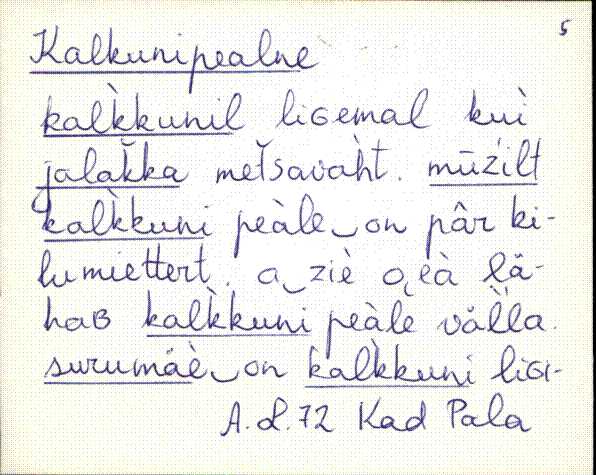 5
Kalkunipealne
kalk̀kunil liɢemal kuì
jalak̆ka met̆savah̀t. mūźilt
kalk̀kuni peàle‿on pâr ki-
lumiettert. a‿ziè o̜eà lǟ-
haʙ kalk̀kuni peàle väl̀la.
surumäè‿on kalk̀kuni liɢɪ-
A.L.72 Kad Pala